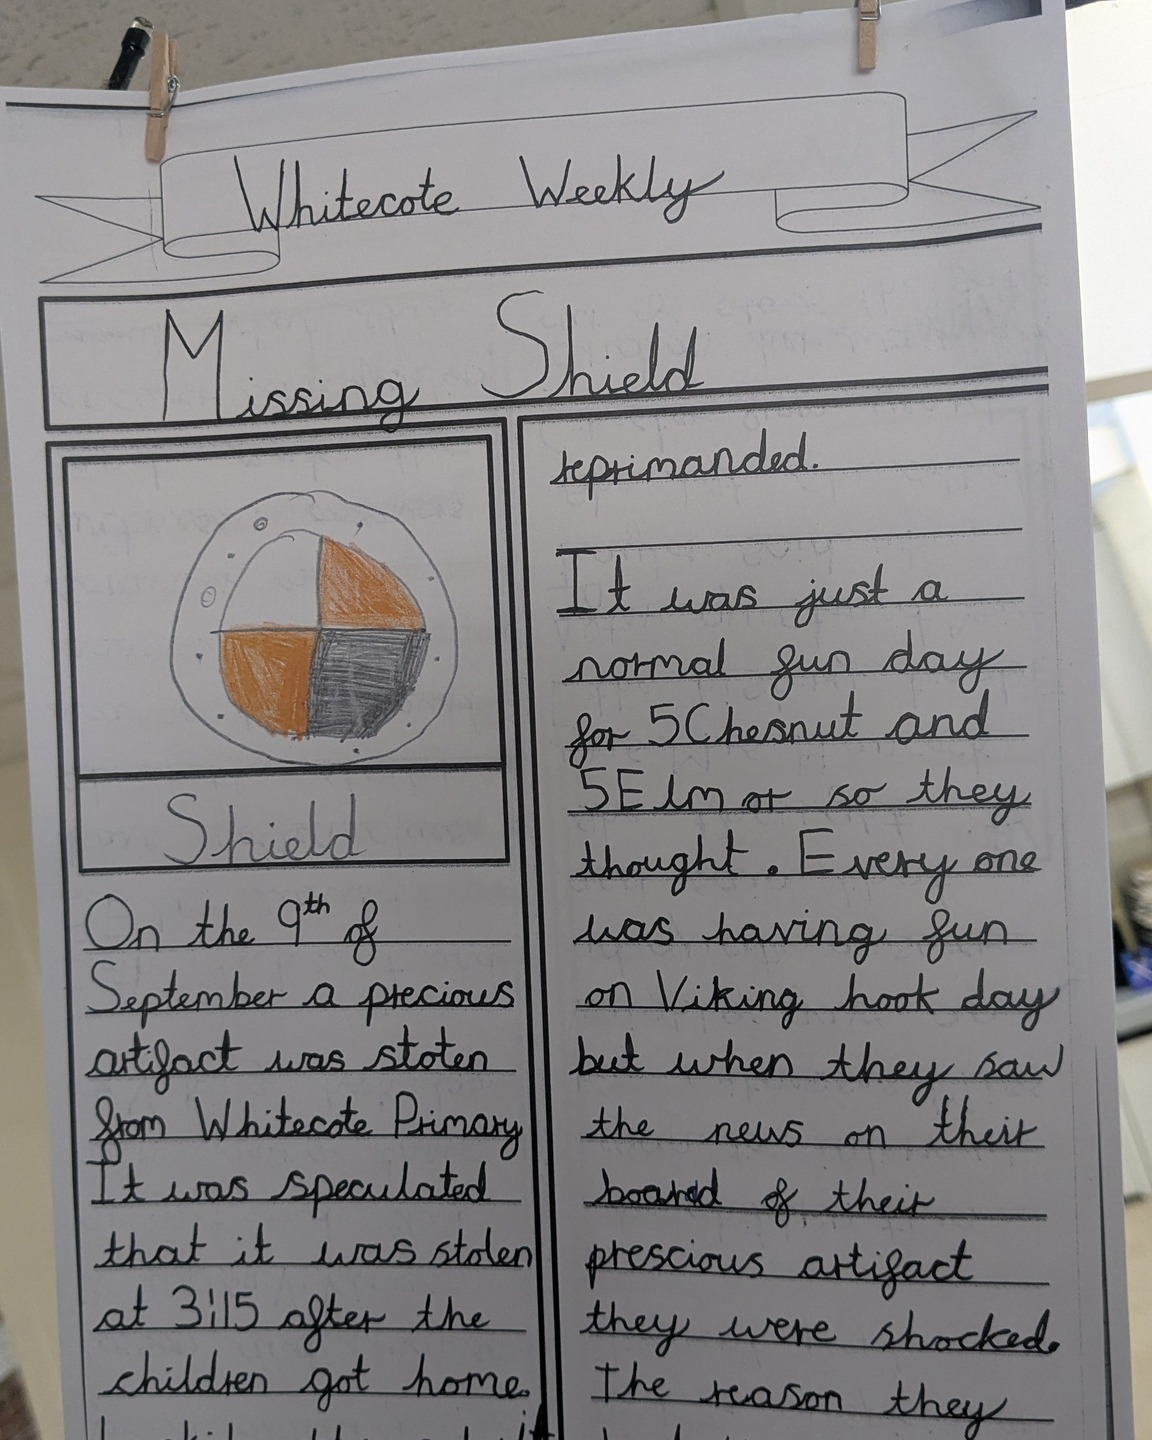 Whitecote Weekly
Missing Shield
Shield
On the 9th of
September a precious
artifact was stolen
from Whitecote Primary
It was speculated
that it was stolen
at 3:15 after the
children got home.
reprimanded.
It was just a
normal fun day
for 5Chesnut and
5Elm or so they
thought. Every one
was having fun
on Viking hook day
but when they saw
the news on their
board of their
prescious artifact
they were shocked.
The reason they